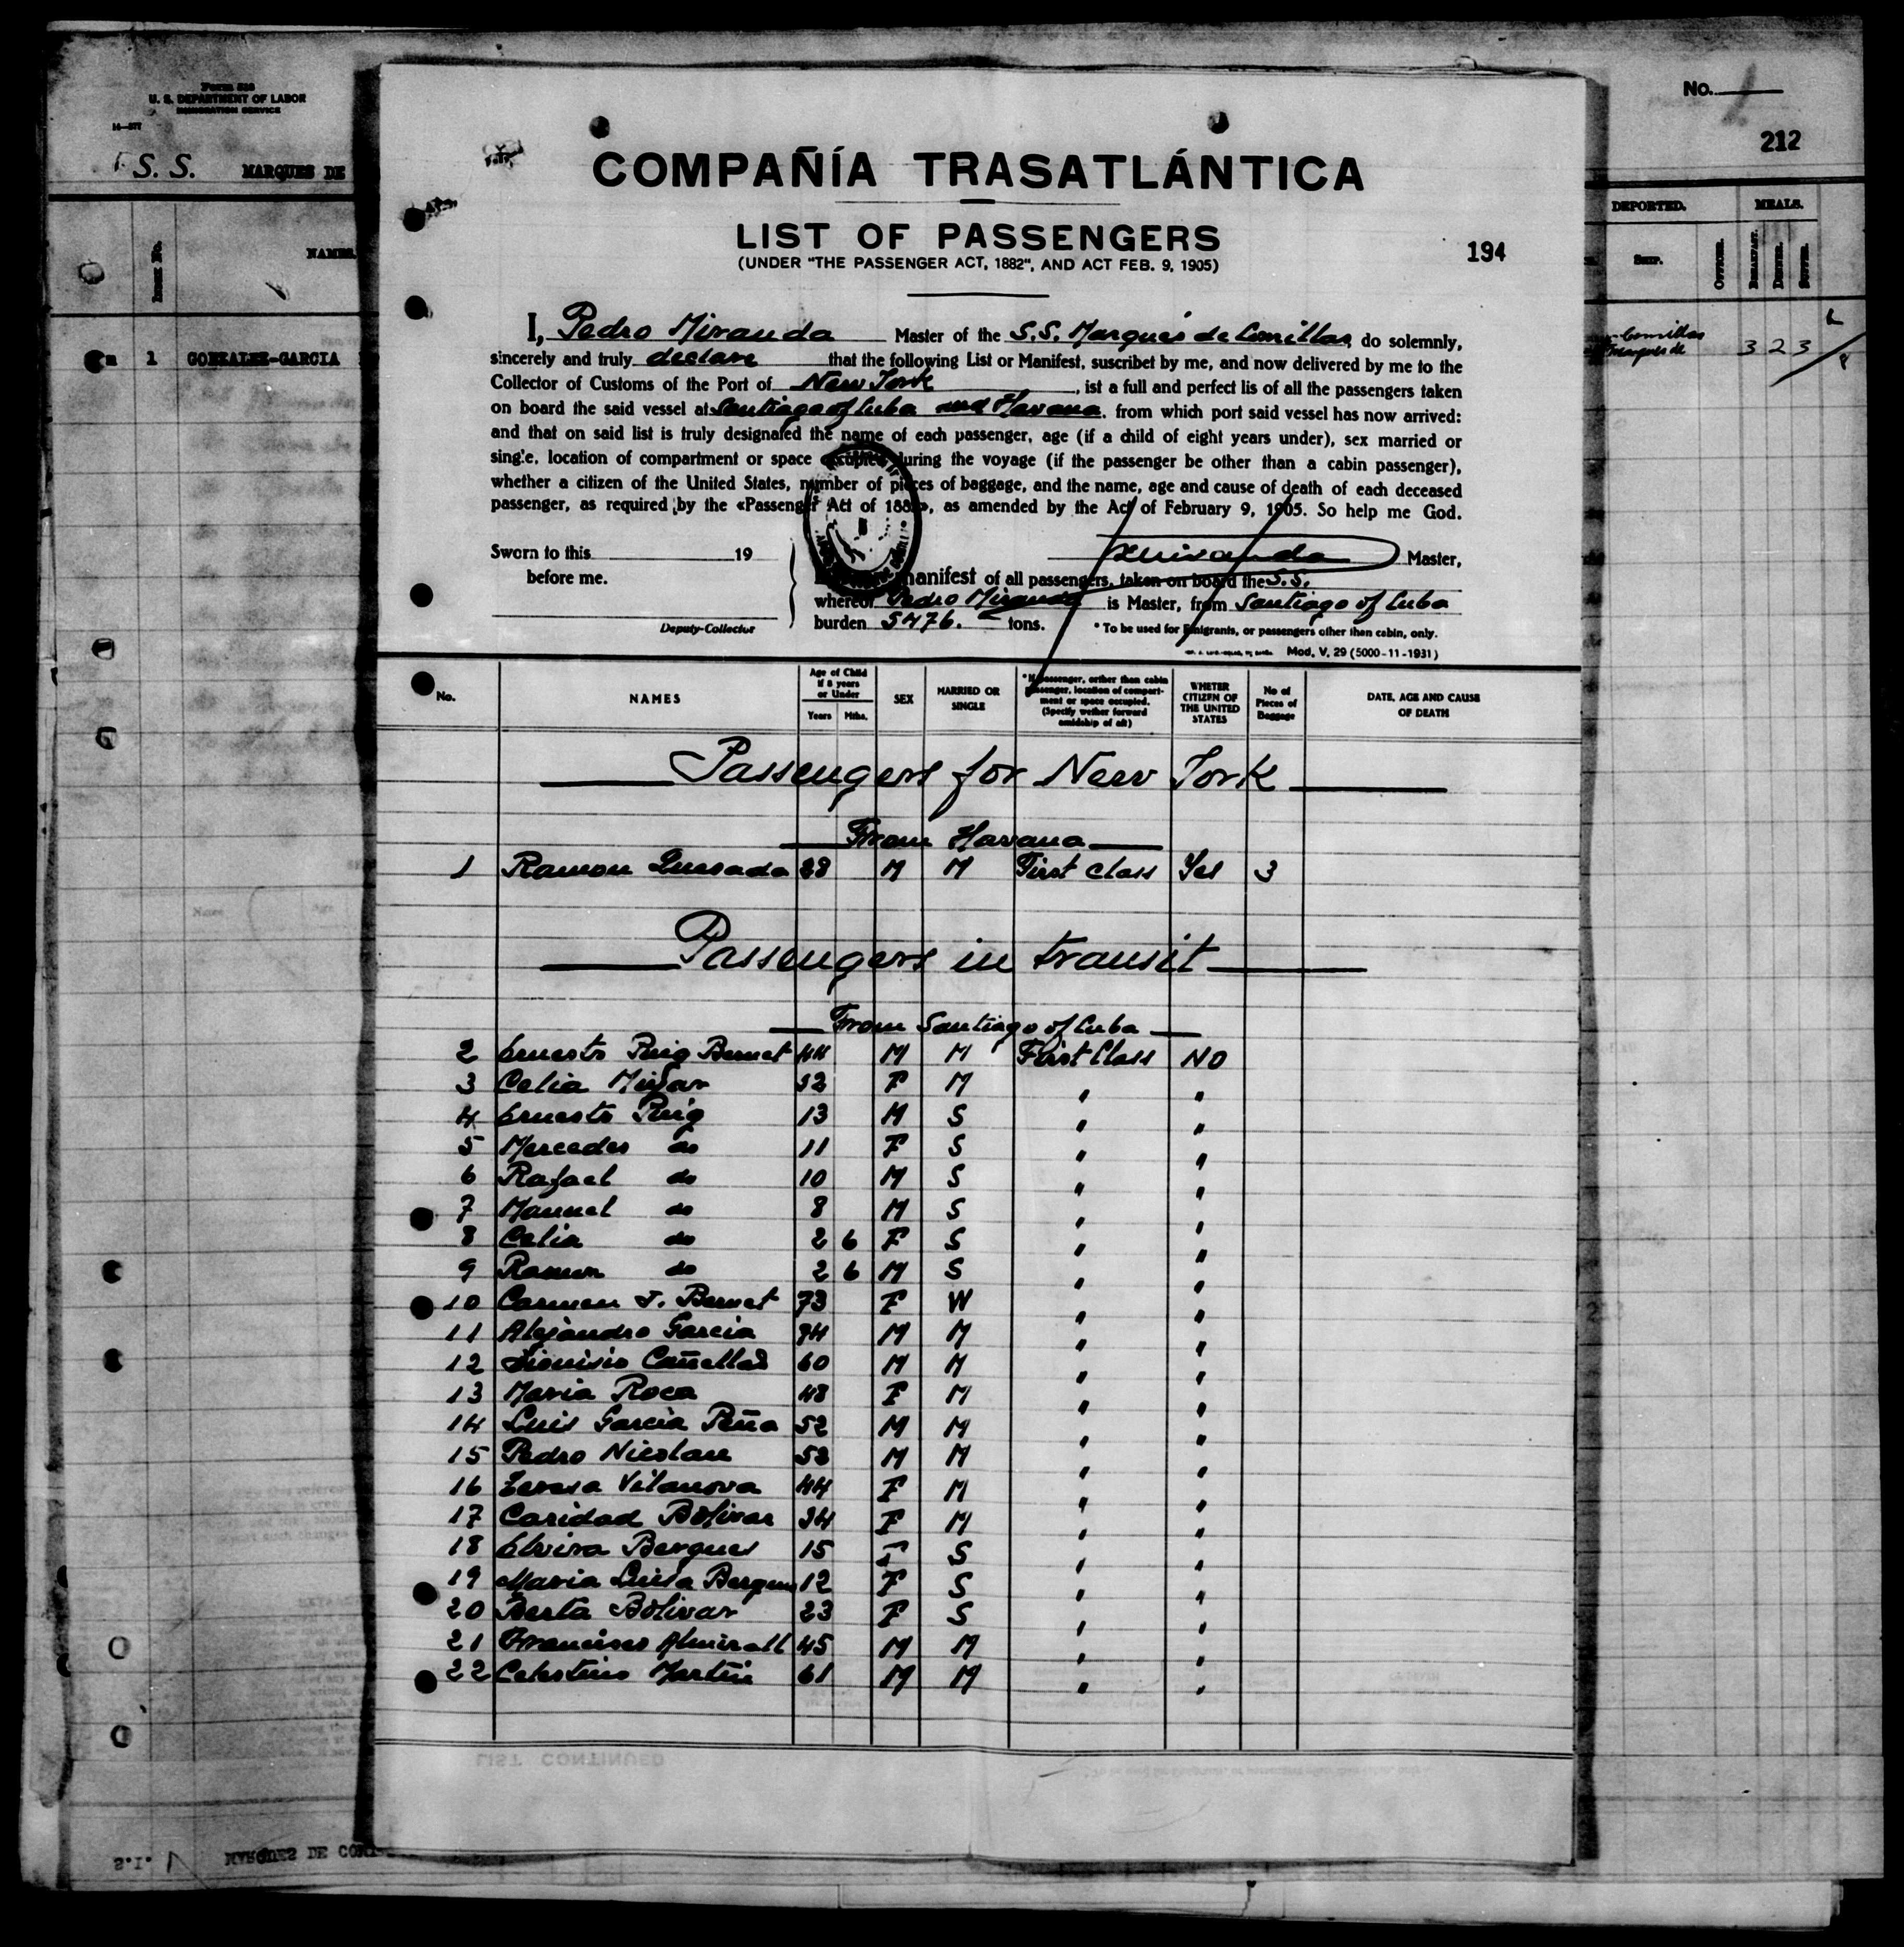 Form 528
U. S. DEPARTMENT OF LABOR
IMMIGRATION SERVICE
14—577
S. S. MARQUES DE
INDEX NO.
NAMES.
1 GONZALEZ-GARCIA
No.
212
DEPORTED.
MEALS.
SHIP.
OFFICER.
BREAKFAST.
DINNER.
SUPPER.
Comillas
Marques de
3 2 3
COMPAÑÍA TRASATLÁNTICA
LIST OF PASSENGERS
(UNDER "THE PASSENGER ACT, 1882", AND ACT FEB. 9, 1905)
194
I, Pedro Miranda Master of the S.S. Marqués de Comillas, do solemnly,
sincerely and truly declare that the following List or Manifest, suscribet by me, and now delivered by me to the
Collector of Customs of the Port of New York, ist a full and perfect lis of all the passengers taken
on board the said vessel at Santiago of Cuba and Havana, from which port said vessel has now arrived:
and that on said list is truly designated the name of each passenger, age (if a child of eight years under), sex married or
single, location of compartment or space occupied during the voyage (if the passenger be other than a cabin passenger),
whether a citizen of the United States, number of pieces of baggage, and the name, age and cause of death of each deceased
passenger, as required by the «Passenger Act of 1882», as amended by the Act of February 9, 1905. So help me God.
Sworn to this 19
before me.
Deputy-Collector
Miranda Master,
manifest of all passengers, taken on board the S.S.
whereof Pedro Miranda is Master, from Santiago of Cuba
burden 5476. tons.
* To be used for Emigrants, or passengers other then cabin, only.
Mod. V. 29 (5000-11-1931)
No.
NAMES
Age of Child if 8 years or Under
Years Mths.
SEX
MARRIED OR SINGLE
* If passenger, orther than cabin passenger, location of compartment or space occupied. (Specify wether forward amidship of aft)
WHETER CITIZEN OF THE UNITED STATES
No of Pieces of Baggage
DATE, AGE AND CAUSE OF DEATH
Passengers for New York
From Havana
1 Ramon Quesada 28 M M First Class Yes 3
Passengers in transit
From Santiago of Cuba
2 Ernesto Puig Bernet 44 M M First Class NO
3 Celia 32 F M " "
4 Ernesto Puig 13 M S " "
5 Mercedes do 11 F S " "
6 Rafael do 10 M S " "
7 Manuel do 8 M S " "
8 Celia do 2 6 F S " "
9 Ramon do 2 6 M S " "
10 Carmen J. Bernet 73 F W " "
11 Alejandro Garcia 34 M M " "
12 Dionisio Cañellas 60 M M " "
13 Maria Roca 48 F M " "
14 Luis Garcia Peña 52 M M " "
15 Pedro Nicolau 53 M M " "
16 Teresa Vilanova 44 F M " "
17 Caridad Bolivar 34 F M " "
18 Elvira Bergues 15 F S " "
19 Maria Luisa Bergues 12 F S " "
20 Berta Bolivar 23 F S " "
21 Francisco Almirall 45 M M " "
22 Celestino Martin 61 M M " "
LIST CONTINUED
S.I. MARQUES DE COMI